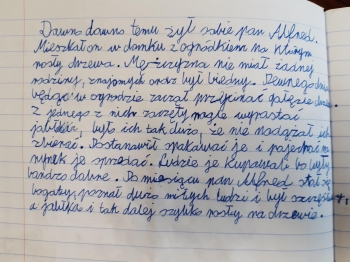 Dawno dawno temu żył sobie pan Alfred.
Mieszkał on w domku z ogródkiem na którym
rosły drzewa. Mężczyzna nie miał żadnej
rodziny, znajomych oraz był biedny. Pewnego dnia
będąc w ogrodzie zaczął przycinać gałęzie drzew
z jednego z nich zaczęły nagle wyrastać
jabłka, było ich tak dużo, że nie nadążał ich
zbierać. Postanowił spakować je i pojechać na
rynek je sprzedać. Ludzie je kupowali bo były
bardzo dobre. Po miesiącu pan Alfred stał się
bogaty, poznał dużo miłych ludzi i był szczęśliwy,
a jabłka i tak dalej szybko rosły na drzewie.